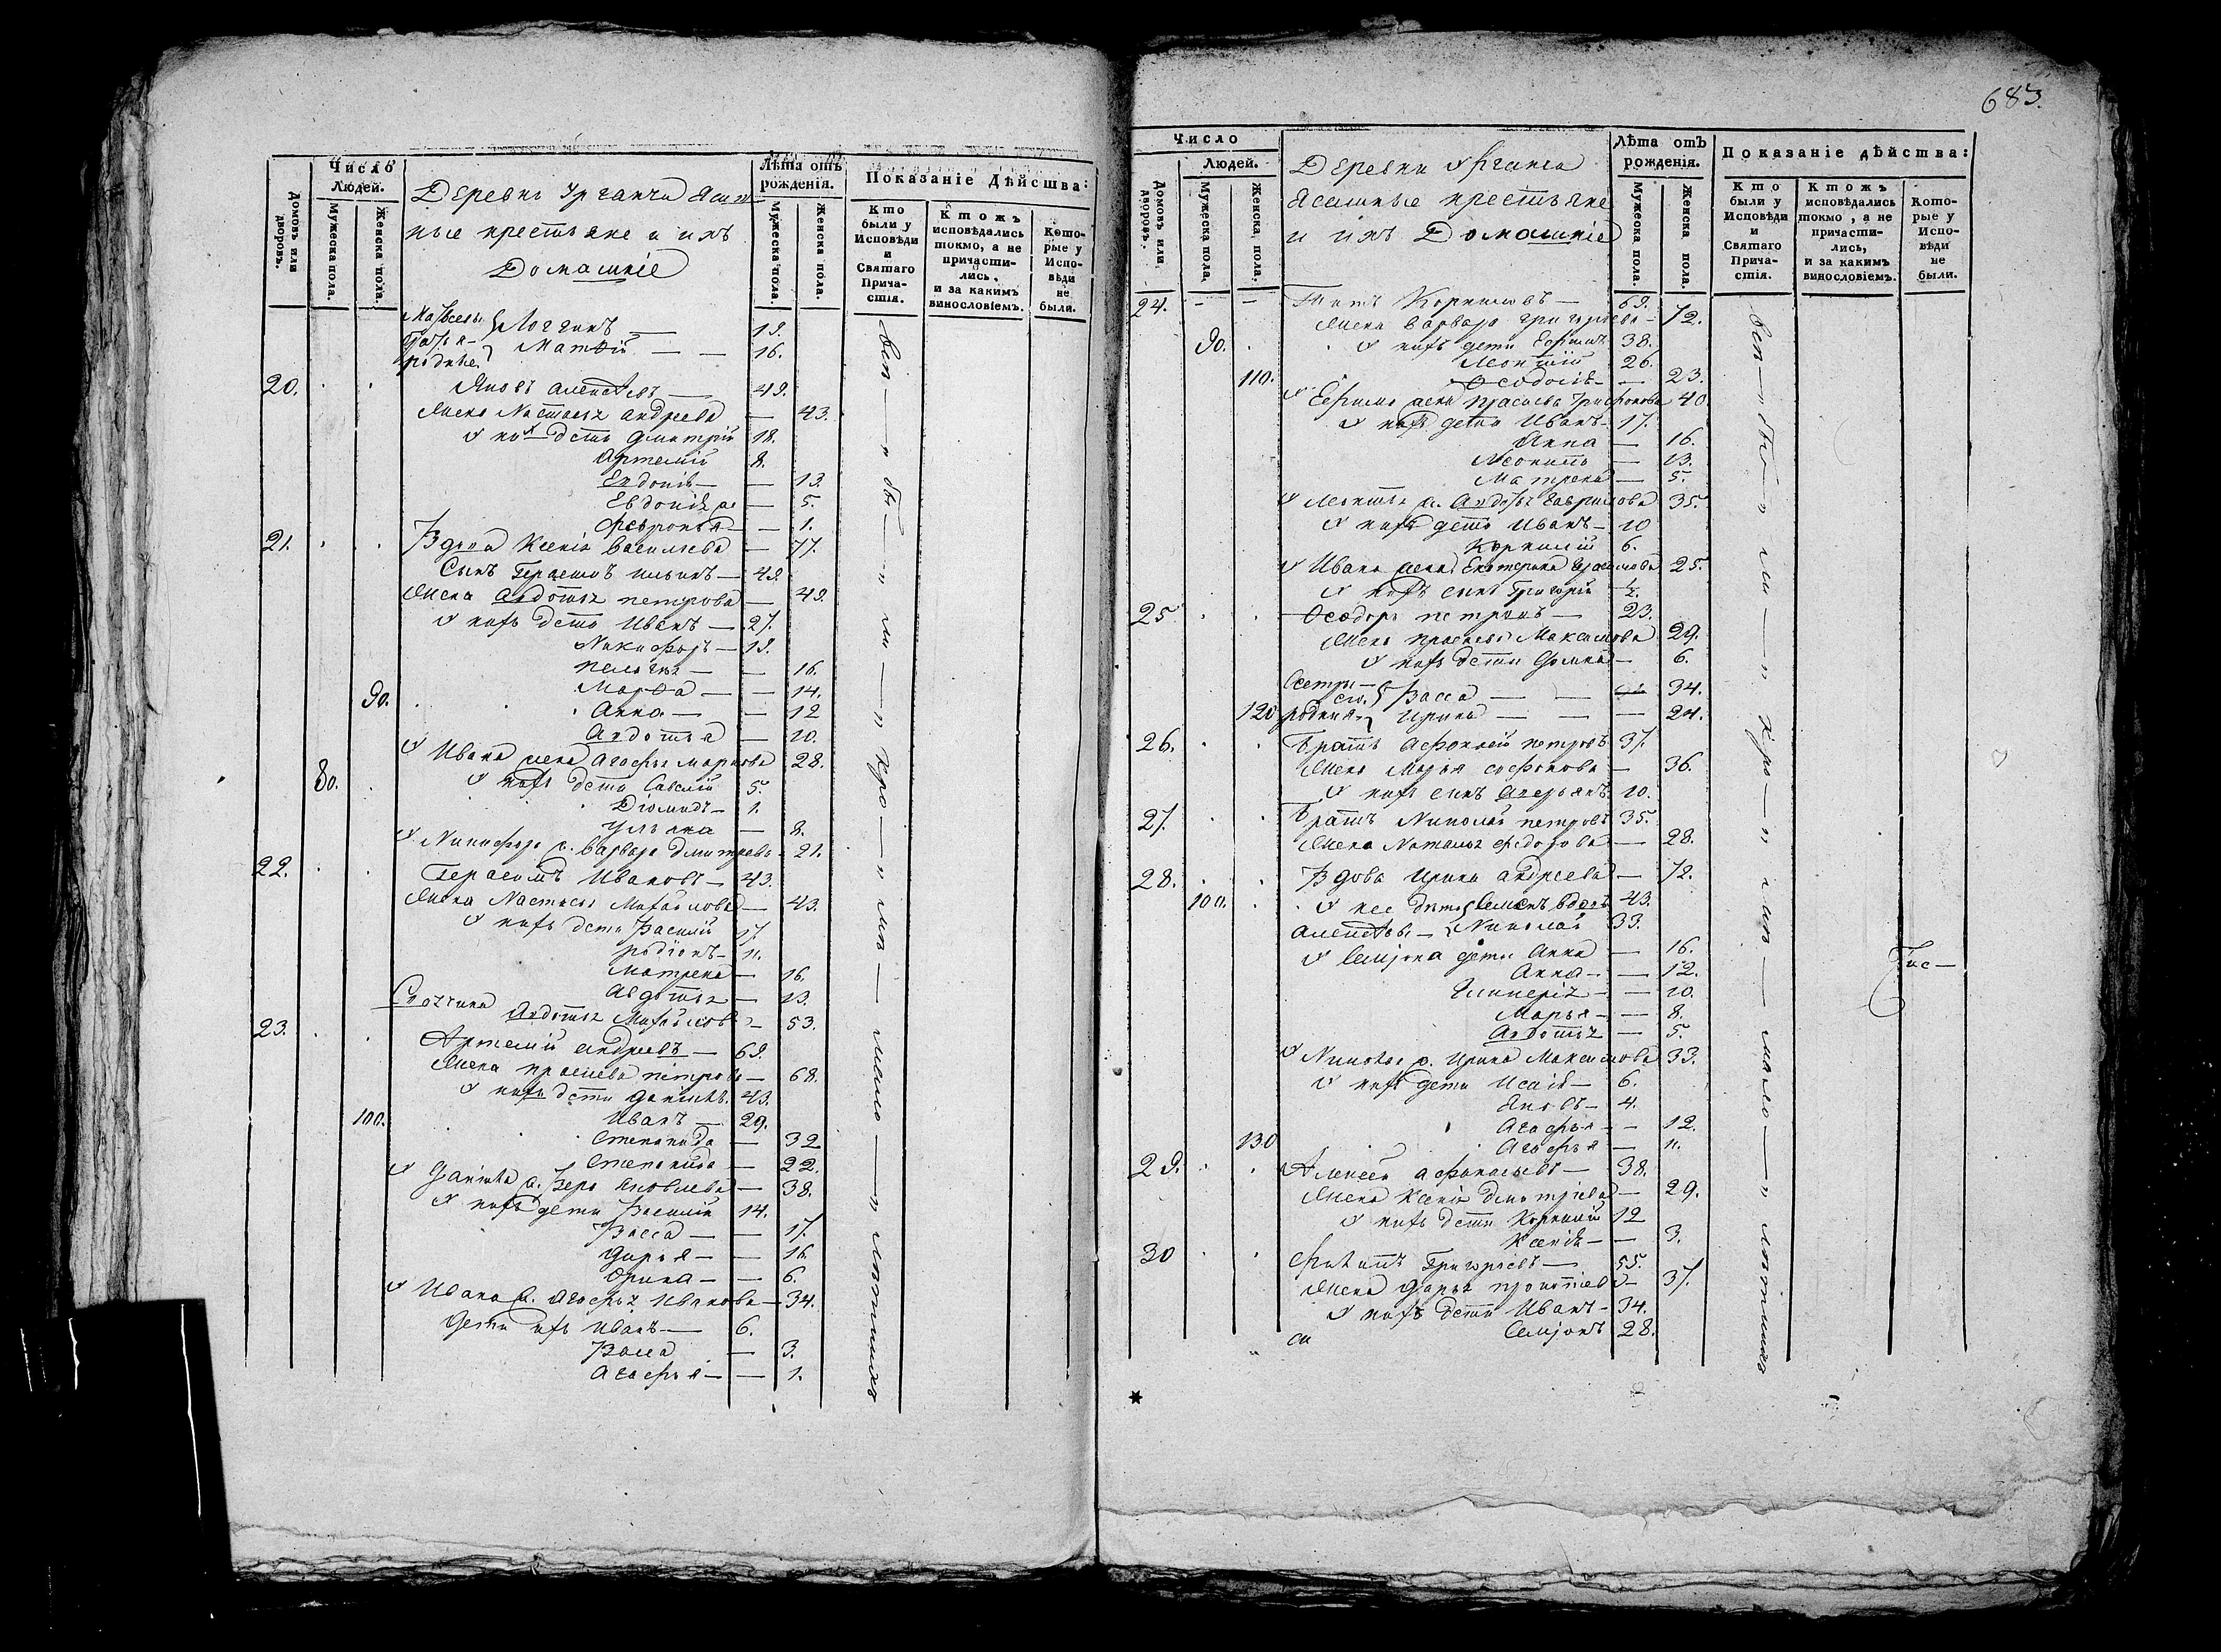 Число
Людей.
Домовъ или дворовъ.
Мужеска пола.
Женска пола.
Деревни Урганчи Ясаш-
ные крестьяне и ихъ
Домашніе
Лѣта отъ рожденія.
Мужеска пола.
Женска пола.
Показаніе Дѣйства:
Кто были у Исповѣди и Святаго Причастія.
Ктожъ исповѣдались токмо, а не причастились, и за какимъ винословіемъ.
Которые у Исповѣди не были.
Логгинъ — 19.
родные Матѳій — — 16.
20. Яковъ Алексѣевъ — 49.
Жена Настасья Андреева — 43.
У нихъ дети Дмитрій 18.
Артемій 8.
Евдокія — — 13.
Евдокія — 5.
Февронья — — 1.
21. Вдова Ксенія Васильева — 77.
Сынъ Герасимъ Ильинъ — 49.
Жена Авдотья Петрова — 49.
У нихъ дети Иванъ — 27.
Никифоръ — 19.
Пелагея — — 16.
Марѳа — — 14.
90. Анна — — 12
Авдотья — 10.
У Ивана жена Агафья Маркова 28.
80. У нихъ дети Савелій 5.
Діомидъ — 1.
Ульяна — 8.
У Никифора ж. Варвара Дмитрева 21.
22. Герасимъ Ивановъ — 43.
Жена Настасья Михайлова — 43.
У нихъ дети Василій 17.
Родіонъ — 11.
Матрена — 16.
Авдотья — 13.
Авдотья Михайлова — 53.
23. Артемій Андреевъ — 69.
Жена Прасковья Петрова — 68.
У нихъ дети Данила 43.
100. Иванъ — 29.
Степанида — 32
Степанида — 22.
У Данила ж. Вера Яковлева — 38.
У нихъ дети Василій 14.
Васса — — 17.
Дарья — — 16
Орина — — 6.
У Ивана ж. Агафья Иванова — 34.
Дети ихъ Иванъ — 6.
Васса — 3.
Агафья — — 1.
683.
Число
Людей.
Домовъ или дворовъ.
Мужеска пола.
Женска пола.
Деревни Урганчи
Ясашные крестьяне
и ихъ Домашніе
Лѣта отъ рожденія.
Мужеска пола.
Женска пола.
Показаніе дѣйства:
Кто были у Исповѣди и Святаго Причастія.
Ктожъ исповѣдались токмо, а не причастились, и за какимъ винословіемъ.
Которые у Исповѣди не были.
24. Титъ Корниловъ — 69.
Жена Варвара Григорьева — 72.
90. У нихъ дети Ефимъ 38.
Леонтій 26.
110. Ѳеодосія — — 23.
У Ефима жена Прасковья 40.
У нихъ дети Иванъ — 17.
Анна — 16.
13.
Матрена — 5.
У Леонтья ж. Авдотья Гаврилова 35.
У нихъ дети Иванъ — 10
Корнилій 6.
У Ивана жена Екатерина 25.
У нихъ сынъ Григорій ½.
25. Ѳеодоръ Петровъ — 23.
Жена Прасковья Максимова 29.
У нихъ дети Домна — 6.
Сестры его Васса — — 34.
120 родныя Ирина — — — 24.
26. Братъ Афонасей Петровъ 37.
Жена Марья Софонова — 36.
У нихъ сынъ Аверьянъ 10.
27. Братъ Николай Петровъ 35.
Жена Наталья Федорова — 28.
28. Вдова Ирина Андреева — 72.
100. У нее дети Семенъ вдовъ 43.
Алексѣевы — Николай 33.
У Семiона дети Анна — 16.
Анна — — 12.
Гликерія — — 10.
Марья — — 8.
Авдотья — 5.
У Николая ж. Ирина Максимова 33.
У нихъ дети Исаія — 6.
Яковъ — 4.
Агафья — — 12.
130 Агафья — 11.
29. Алексей Афонасьевъ — 38.
Жена Ксенія Дмитріева — 29.
У нихъ дети Корнилій 12
Ксенія — — 3.
30 Филипъ Григорьевъ — 55.
Жена Дарья Прокопіева — 37.
У нихъ дети Иванъ — 34.
Семіонъ 28.